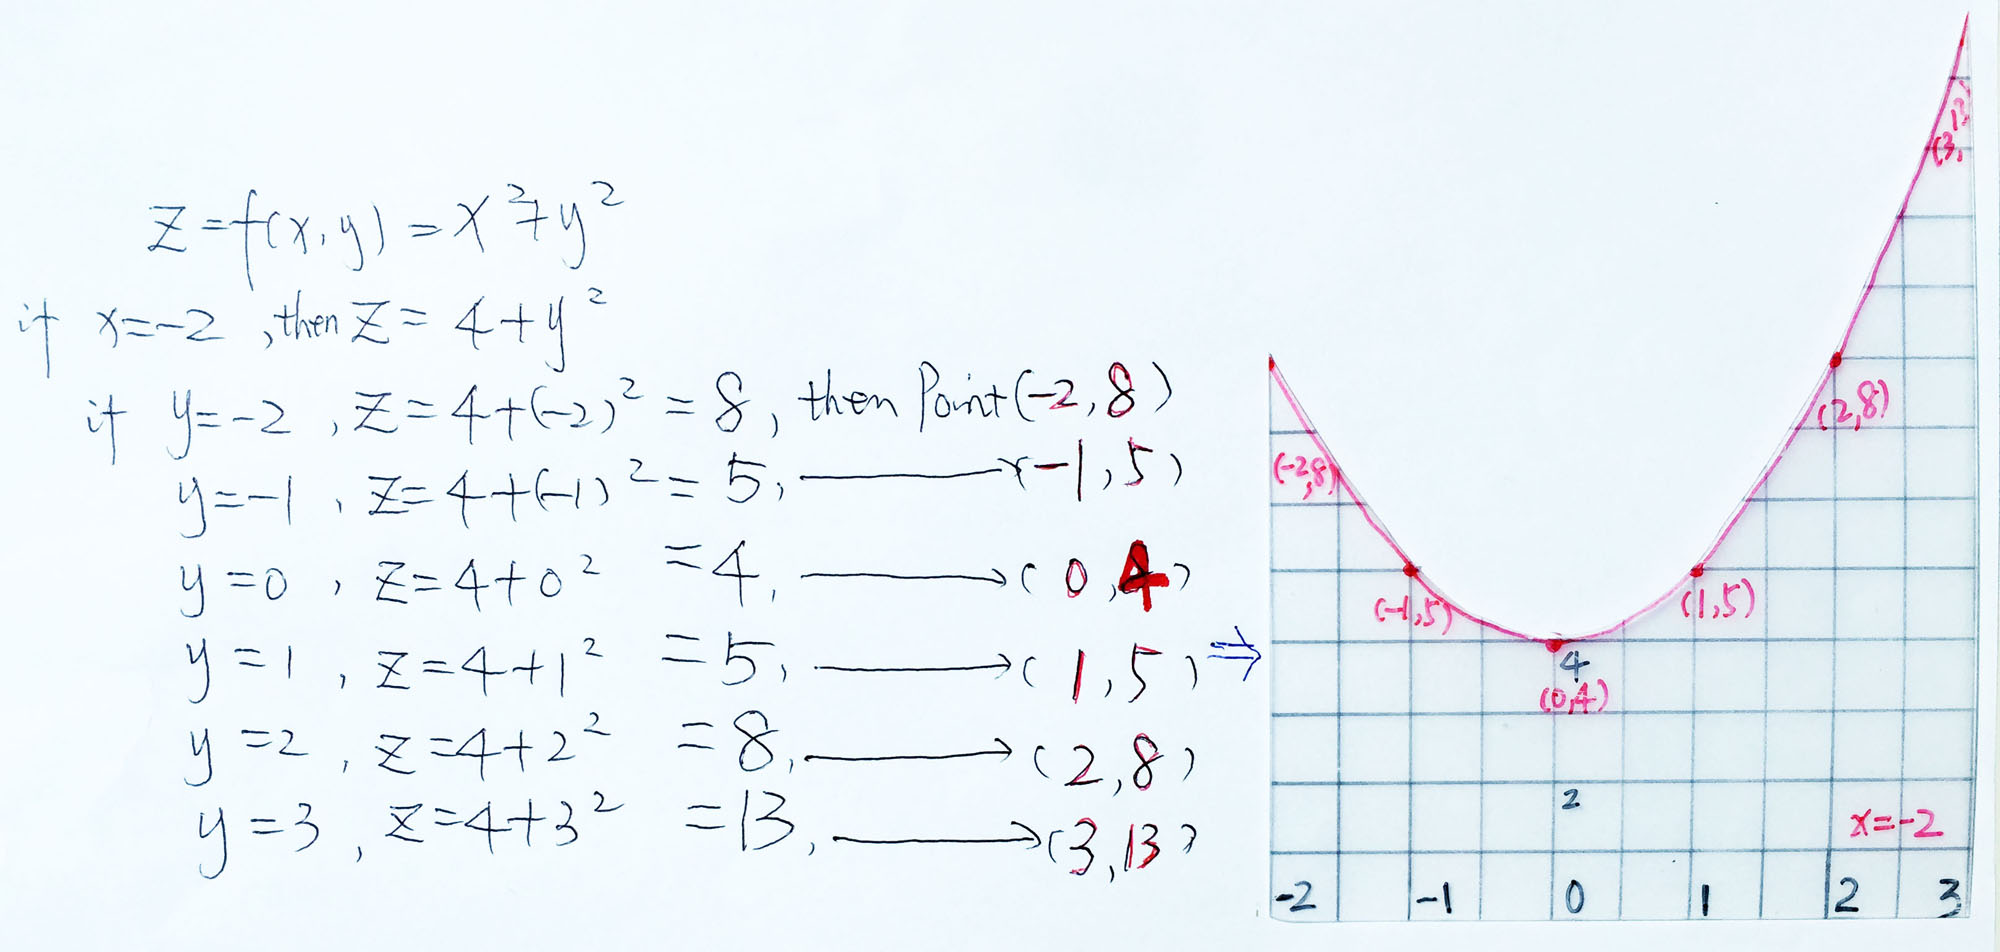 z=f(x,y)=x²+y²
if x=-2, then z= 4+y²
if y=-2, z=4+(-2)²=8, then Point(-2,8)
y=-1, z=4+(-1)²=5, (-1,5)
y=0, z=4+0² =4, →(0,4)
y=1, z=4+1² =5, →(1,5) ⇒
y=2, z=4+2² =8, →(2,8)
y=3, z=4+3² =13, →(3,13)
(3,13
(2,8)
(-2,8)
(-1,5)
(1,5)
4
(0,4)
2
x=-2
-2 -1 0 1 2 3